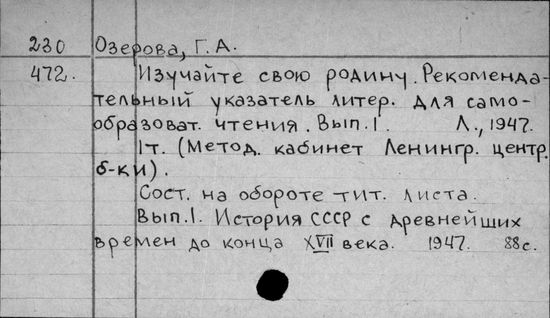 230 Озерова, Г. А.
472. Изучайте свою родину. Рекоменда-
тельный указатель литер. для само-
образоват. чтения. Вып. 1. Л., 1947.
1т. (Метод. кабинет Ленингр. центр.
б-ки).
Сост. на обороте тит. листа.
Вып. 1. История СССР с древнейших
времен до конца XVII века. 1947. 88с.